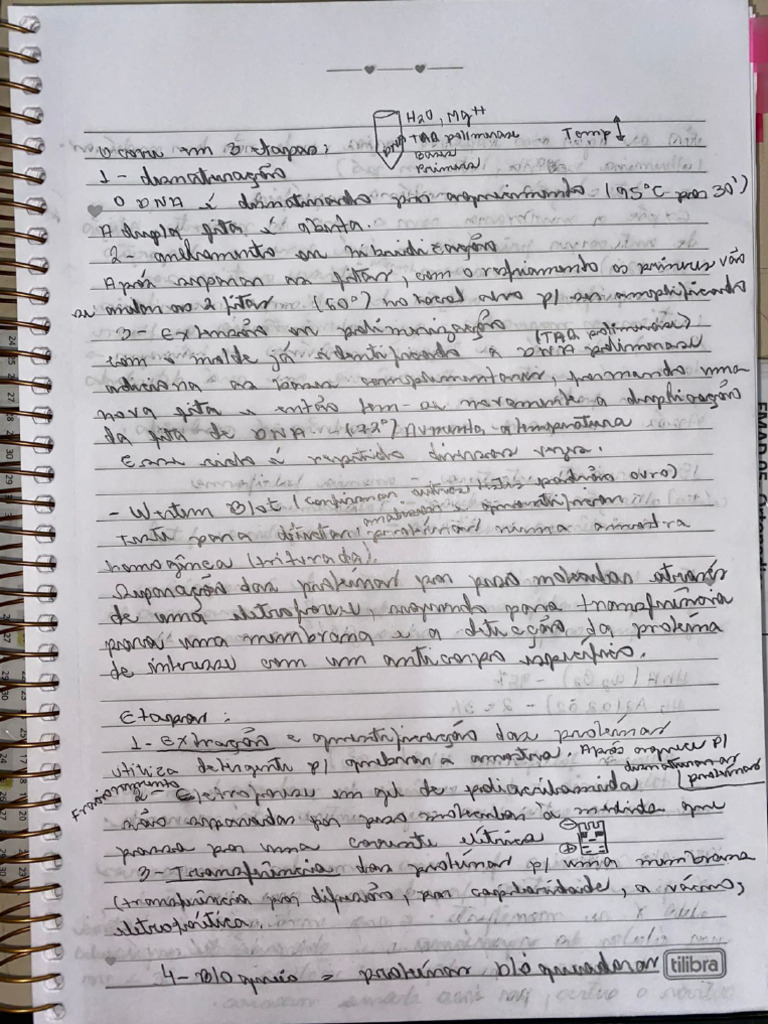 H2O, Mg++
TAQ polimerase
bases
primers
DNA
Temp ↕
Ocorre em 3 etapas:
1 - desnaturação
O DNA é desnaturado por aquecimento (95°C por 30')
A dupla fita é aberta.
2 - anelamento ou hibridização
Após separar as fitas, com o resfriamento os primers vão
se anelar as 2 fitas (60°) no local alvo p/ ser amplificado
3 - Extensão ou polimerização (TAQ polimerase)
com o molde já identificado a DNA polimerase
adiciona as bases complementares, formando uma
nova fita e então tem-se novamente a duplicação
da fita de DNA. (72°) Aumenta a temperatura
Esse ciclo é repetido diversas vezes.
- Western Blot (confirmar outros testes padrão ouro)
analisar e quantificar
teste para detectar proteínas numa amostra
homogênea (triturada).
Separação das proteínas por peso molecular através
de uma eletroforese, seguindo para transferência
para uma membrana e a detecção da proteína
de interesse com um anticorpo específico.
Etapas:
1 - Extração e quantificação das proteínas
utiliza detergente p/ quebrar a amostra. Após aquece p/
desnaturar as proteínas
Fracionamento
2 - Eletroforese em gel de poliacrilamida
são separadas por peso molecular a medida que
passa por uma corrente elétrica
3 - Transferência das proteínas p/ uma membrana
(transferência por difusão, por capilaridade, a vácuo,
eletroforética.
4 - Bloqueio = proteínas bloqueadoras
tilibra